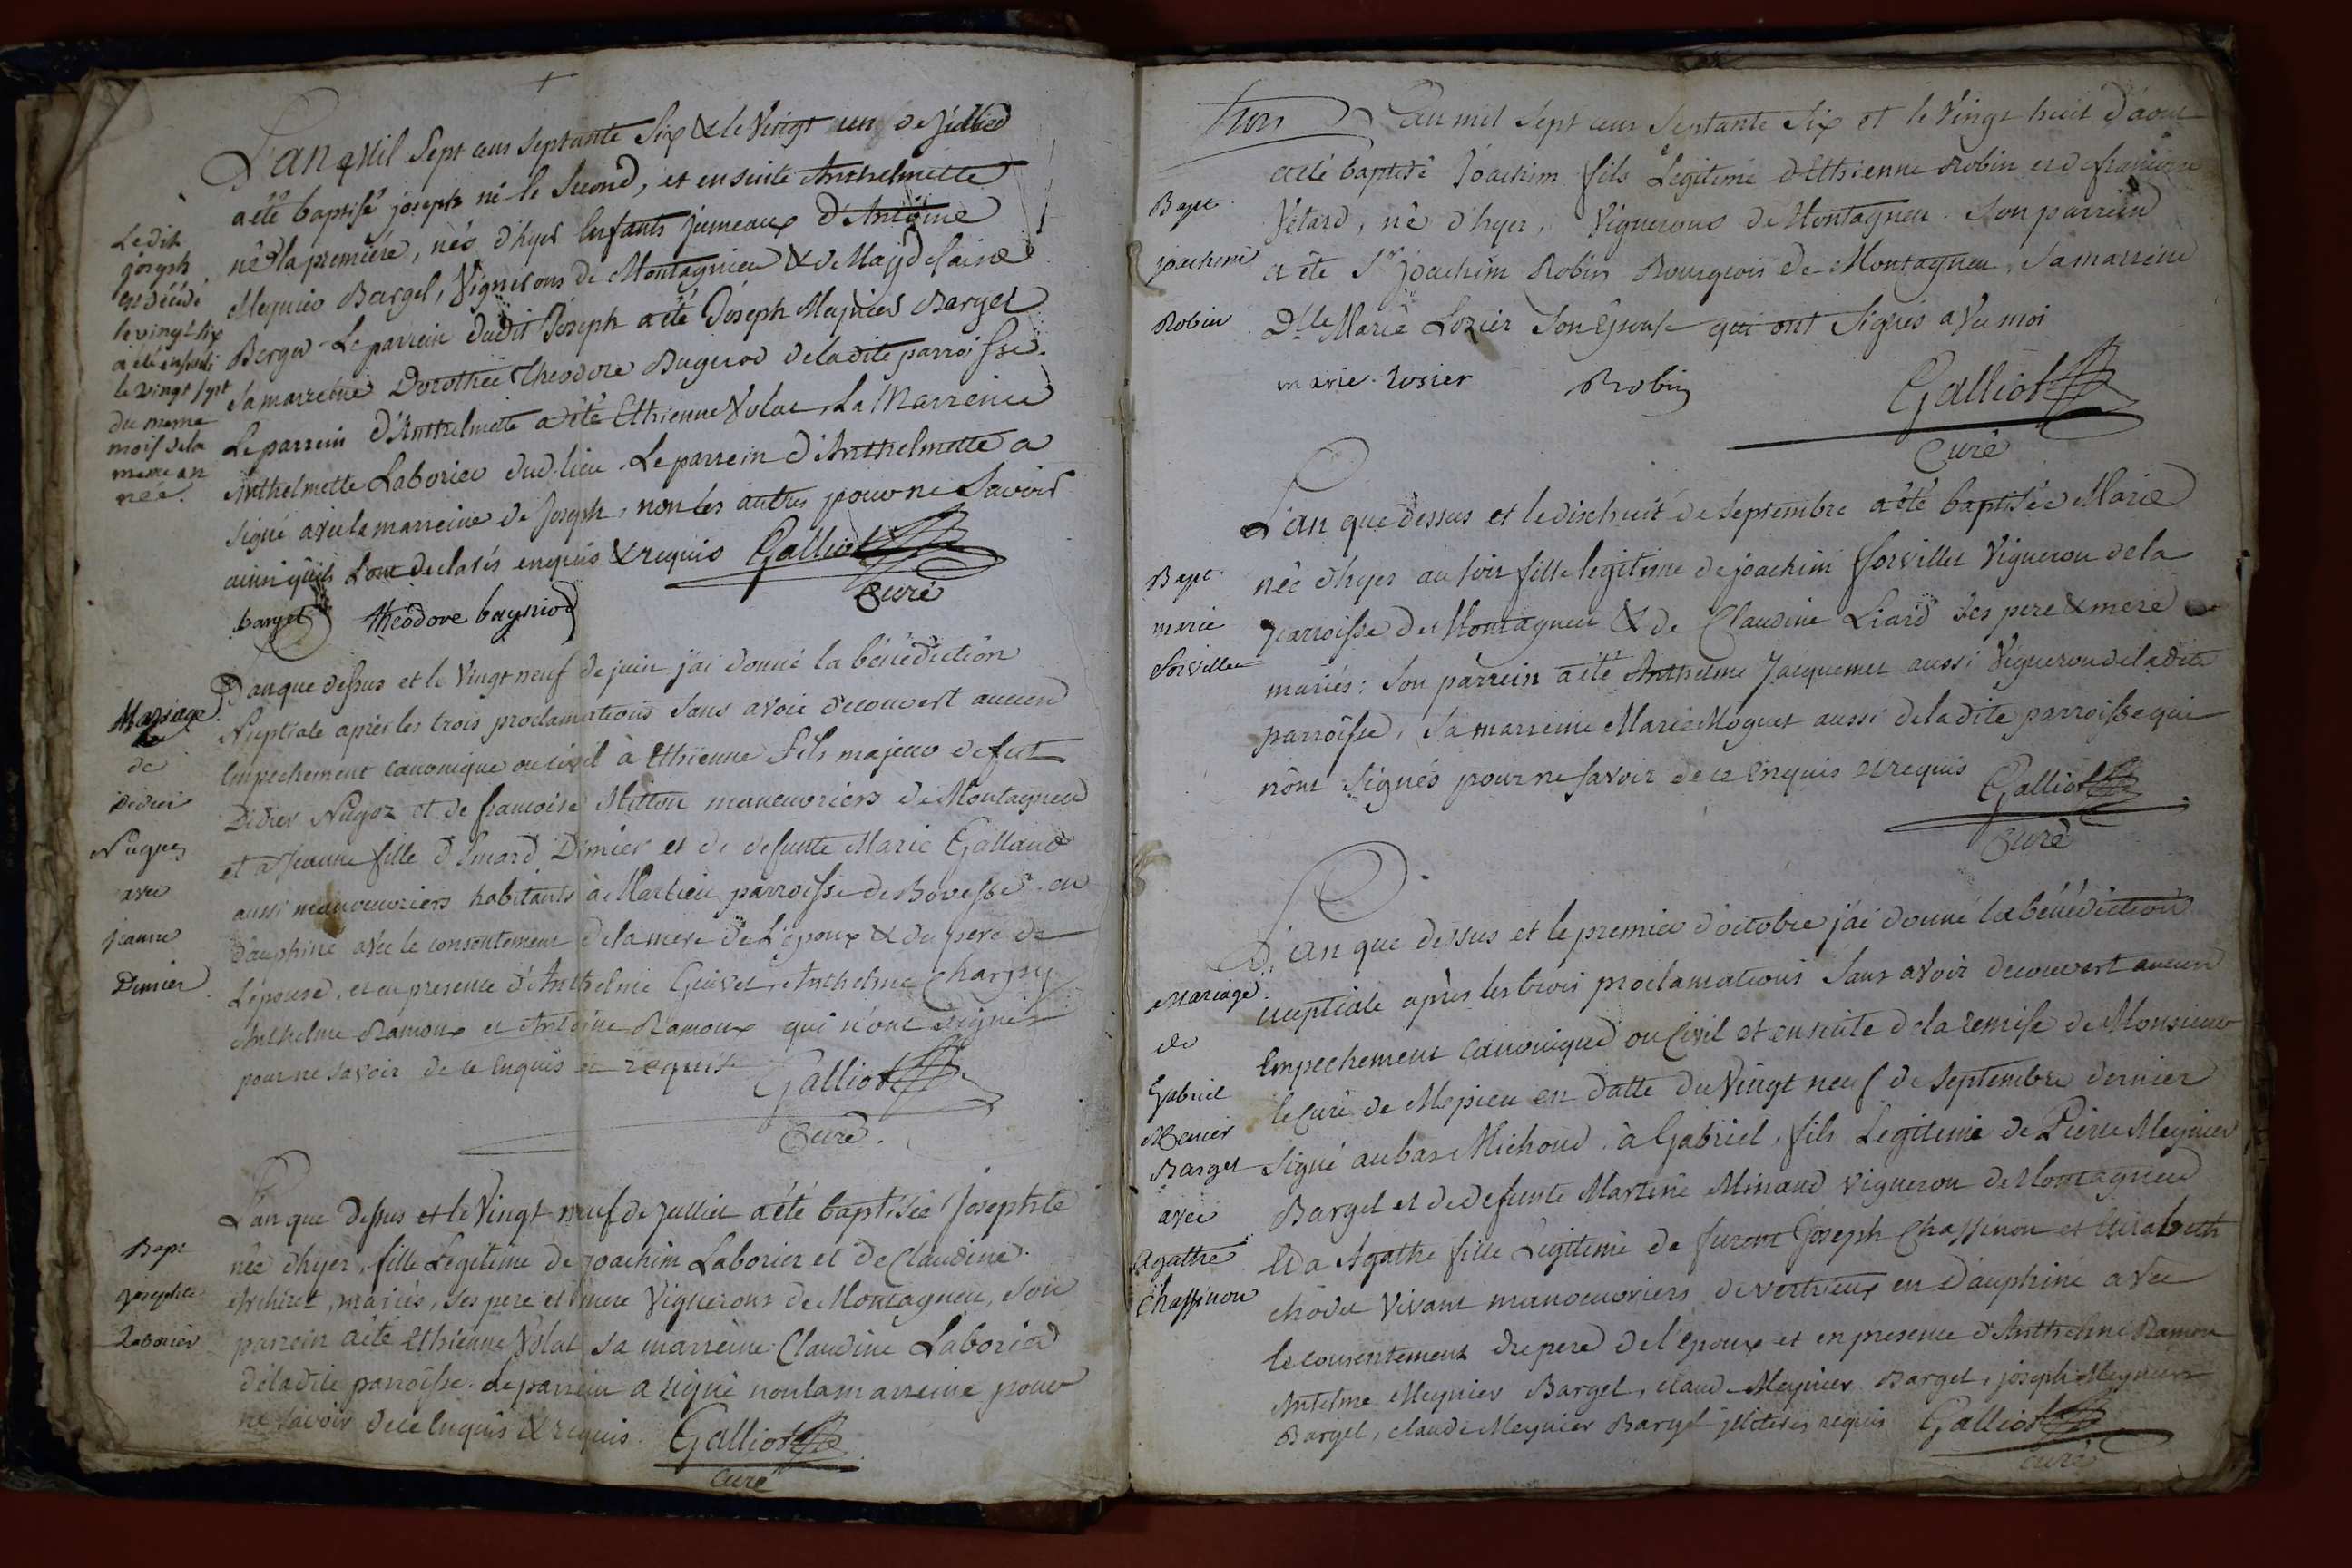 L'an Mil Sept cens Septante Six & le Vingt un de Juillied
a été baptisé joseph né le Second, et ensuite Anthelmette
née la premiere, nés d'hyer Enfants Jumeaux d'Antoine
Meynier Barget, Vignerons de Montagnieu & de Magdelaine
Berger Le parrein dudit Joseph a été Joseph Meynier Barget
Sa marreine Dorothée Theodore Bugniod de ladite parroisse.
Le parrein d'Anthelmette a été Ethienne Volat, La Marreine
Anthelmette Laborier dud. lieu. Le parrein d'Anthelmette a
signé avec la marreine de Joseph, non les autres pour ne Savoir
ainsi qu'ils L'ont declarés enquis & requis Galliot
Curé
barget theodore bugniod
Le dit
joseph
est décédé
le vingt six
a été enseveli
le vingt sept
du meme
mois de la
meme an
née.
L'an que dessus et le Vingt neuf de juin j'ai donné la bénédiction
Nuptiale après les trois proclamations Sans avoir decouvert aucun
Empechement canonique ou civil à Ethienne Fils majeur de feu
Didier Nugoz et de francoise Mitton manouvriers de Montagneu
et à Jeanne fille d'Emard Dimier et de defunte Marie Galland
aussi manouvriers habitants à Marlieu parroisse de Bovesse en
Dauphiné avec le consentement de la mere de L'époux & du pere de
L'épouse, et en presence d'Anthelme Guivet, Anthelme Chargy
Anthelme Ramoux et Antoine Ramoux qui n'ont signés
pour ne savoir de ce Enquis et requis
Galliot
Curé.
Mariage
de
Didier
Nuguez
avec
jeanne
Dimier
L'an que dessus et le Vingt neuf de Juillet a été baptisée Josephte
née d'hyer, fille Legitime de Joachim Laborier et de Claudine
mariés, ses pere et mere Vignerons de Montagneu, son
parrein a été Ethienne Volat sa marreine Claudine Laborier
de ladite parroisse. Le parrein a signé non la marreine pour
ne savoir de ce Enquis & requis. Galliot
Curé
Bapt
josephte
Laborier
L'an mil Sept cens Septante Six et le Vingt huit d'aout
a été baptisé Joachim fils Légitime d'Ethienne Robin et de francoise
Jetard, né d'hyer, Vignerons de Montagneu. Son parrein
a été Sr Joachim Robin Bourgeois de Montagneu, Sa marreine
Dlle Marie Lozier Son Epouse qui ont Signés avec moi
marie Rosier Robin Galliot
Curé
Bapt.
joachim
Robin
L'an que dessus et le dix huit de septembre a été baptisée Marie
née d'hyer au soir fille legitime de joachim Sorvillet Vigneron de la
parroisse de Montagneu & de Claudine Liard ses pere & mere
mariés: Son parrein a été Anthelme Jacquemet aussi Vigneron de ladite
parroisse, Sa marreine Marie Moguet aussi de ladite parroisse qui
n'ont Signés pour ne savoir de ce Enquis et requis Galliot
Curé
Bapt.
marie
Sorvillet
L'an que dessus et le premier d'octobre j'ai donné la bénédiction
nuptiale après les trois proclamations Sans avoir decouvert aucun
Empechement canonique ou Civil et ensuite de la remise de Monsieur
le Curé de Mepieu en datte du Vingt neuf de Septembre dernier
Signé au bas Michoud à Gabriel, fils Legitime de Pierre Meynier
Barget et de defunte Martine Minaud vigneron de Montagneu
Et à Agathe fille Legitime de furent Joseph Chassinon et Elisabeth
vivant manouvriers de vertrieux en Dauphiné avec
le consentement du pere de l'epoux et en presence d'Anthelme Ramou
Antelme Meynier Barget, claud Meynier Barget, joseph Meynier
Barget, claude Meynier Barget illiterés requis Galliot
Curé
Mariage
de
Gabriel
Menier
Barget
avec
Agathe
Chassinon